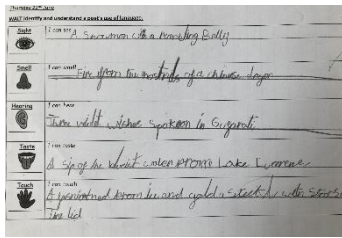 Thursday 22nd June
WALT identify and understand a poet's use of language.
Sight
I can see
A Snowman with a rumbling Belly
Smell
I can smell
Fire from the nostrils of a chinese dragon
Hearing
I can hear
Three violet wishes spoken in Gujarati
Taste
I can taste
A sip of the bluest water from Lake Lucerne
Touch
I can touch
the lid